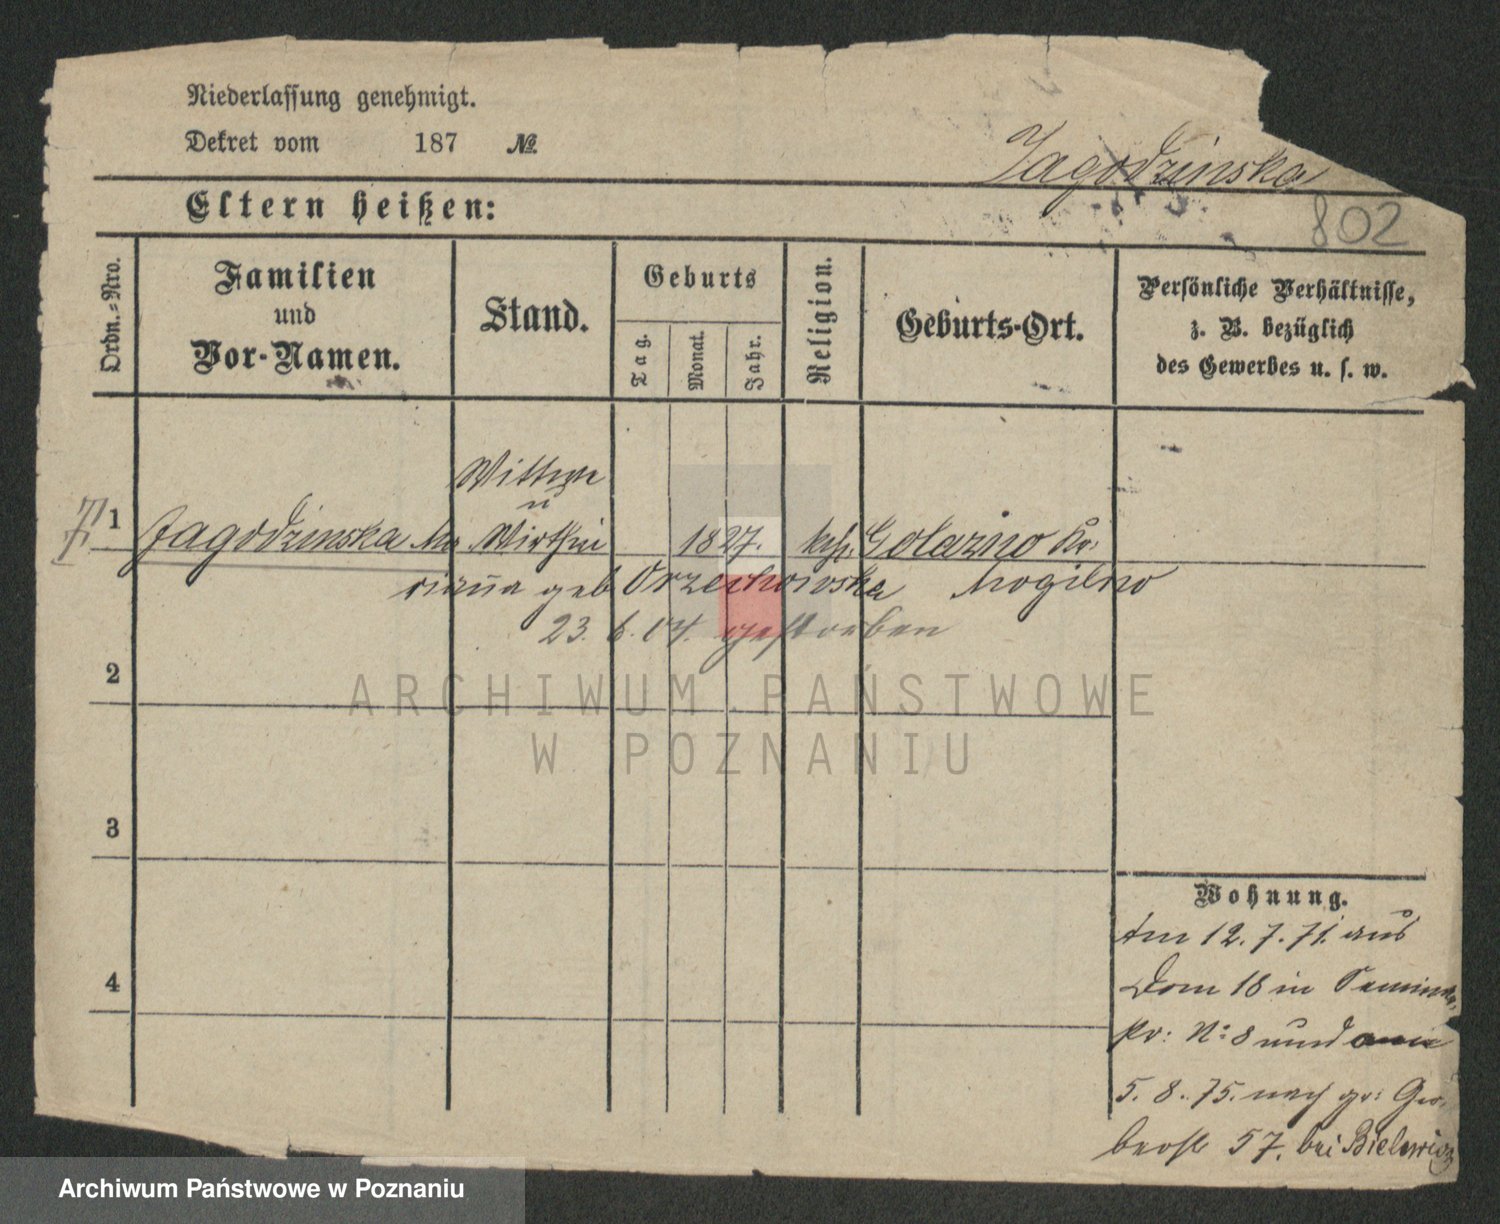 Niederlassung genehmigt.
Dekret vom 187 №
Jagodzinska
802
Eltern heißen:
Ordn.=Nro.
Familien
und
Vor-Namen.
Stand.
Geburts
Tag.
Monat.
Jahr.
Religion.
Geburts-Ort.
Persönliche Verhältnisse,
z. B. bezüglich
des Gewerbes u. s. w.
Wittwe
u
1 Jagodzinska Ma Wirthin 1827. kath. Golazno Kr.
rianna geb Orzechowska Mogilno
23. 6. 04. gestorben
2
3
4
Wohnung.
Am 12. 7. 71. aus
Dom 18 in
Kr: N: 8 und
5. 8. 75. nach gr: Ger
berstr 57. bei Bielewicz
ARCHIWUM PAŃSTWOWE
W POZNANIU
Archiwum Państwowe w Poznaniu